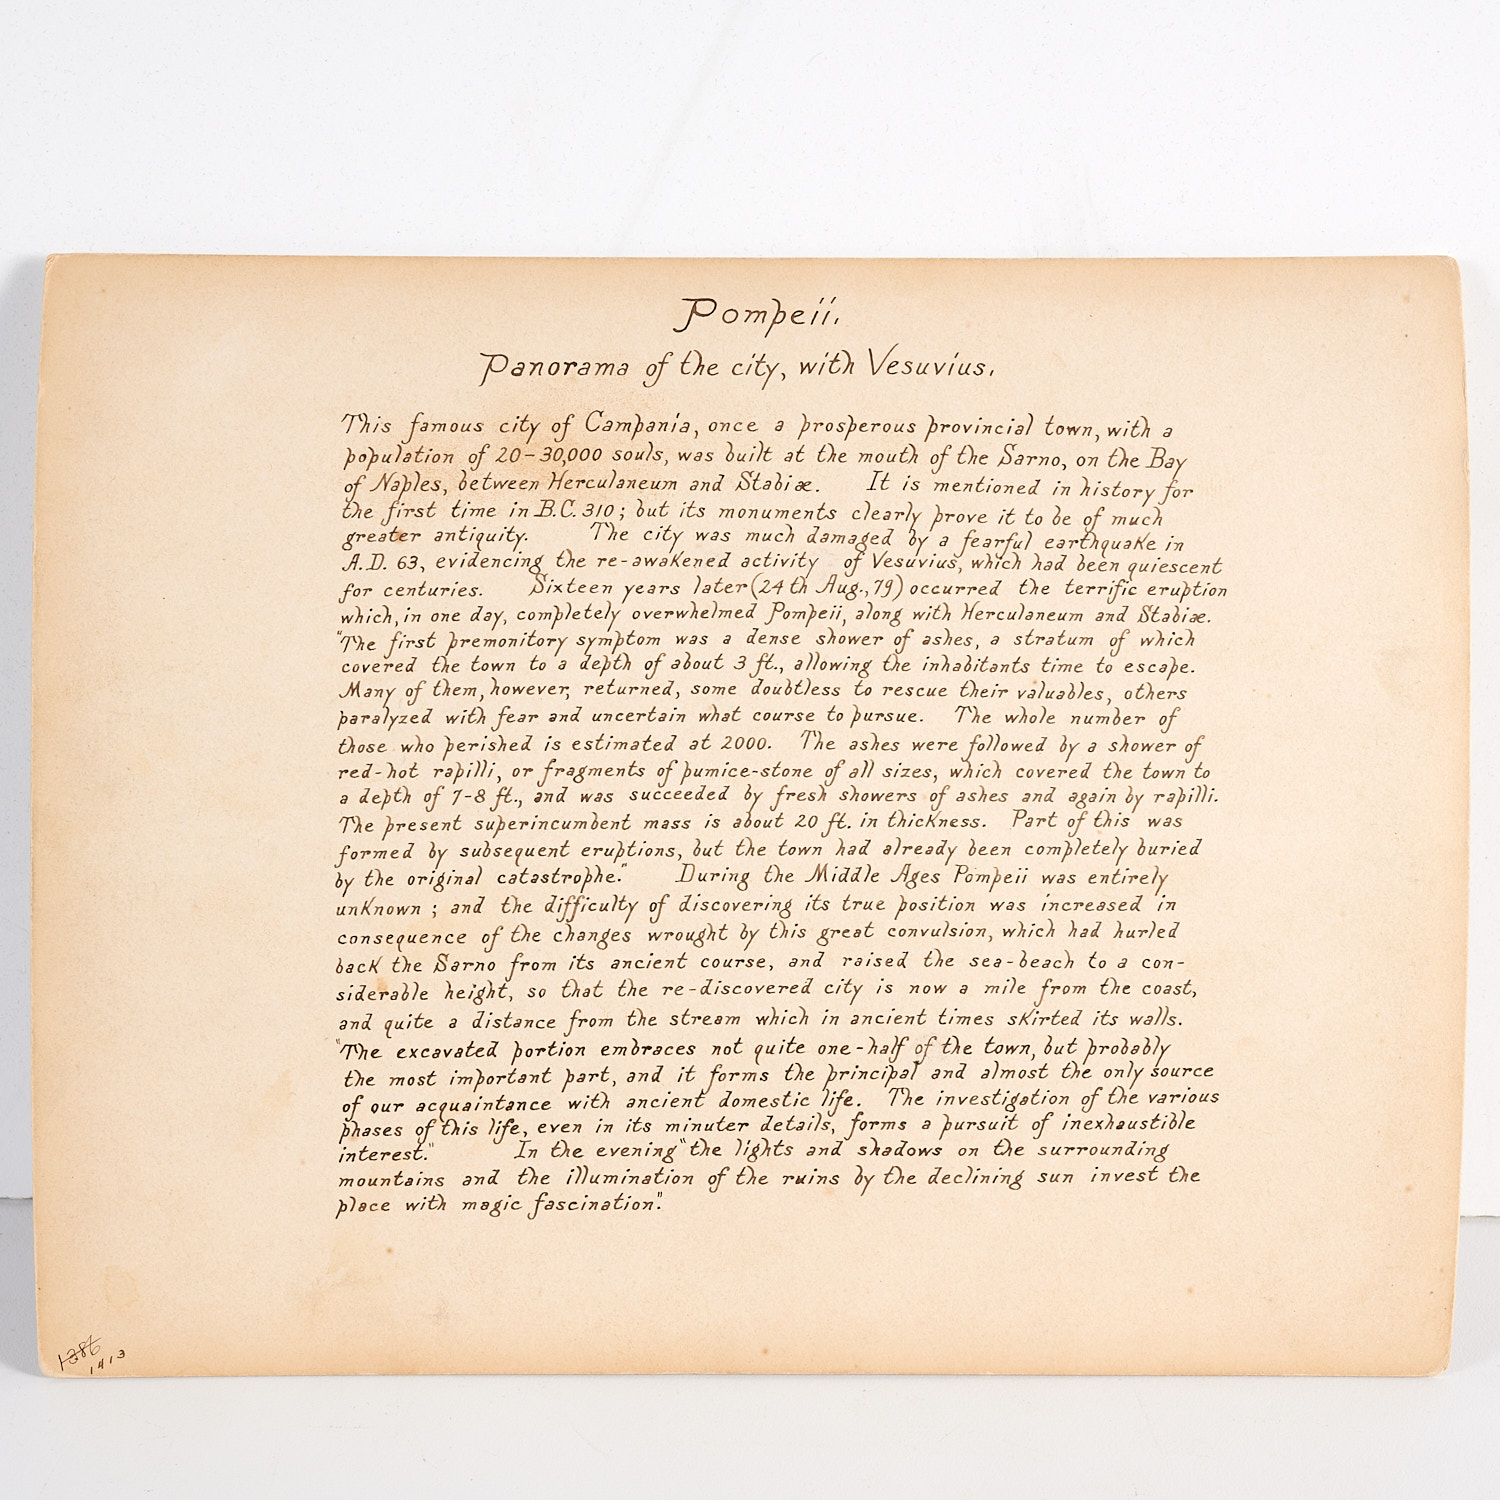 Pompeii.
Panorama of the city, with Vesuvius.
This famous city of Campania, once a prosperous provincial town, with a
population of 20-30,000 souls, was built at the mouth of the Sarno, on the Bay
of Naples, between Herculaneum and Stabiæ. It is mentioned in history for
the first time in B.C. 310; but its monuments clearly prove it to be of much
greater antiquity. The city was much damaged by a fearful earthquake in
A.D. 63, evidencing the re-awakened activity of Vesuvius, which had been quiescent
for centuries. Sixteen years later (24th Aug., 79) occurred the terrific eruption
which, in one day, completely overwhelmed Pompeii, along with Herculaneum and Stabiæ.
"The first premonitory symptom was a dense shower of ashes, a stratum of which
covered the town to a depth of about 3 ft., allowing the inhabitants time to escape.
Many of them, however, returned, some doubtless to rescue their valuables, others
paralyzed with fear and uncertain what course to pursue. The whole number of
those who perished is estimated at 2000. The ashes were followed by a shower of
red-hot rapilli, or fragments of pumice-stone of all sizes, which covered the town to
a depth of 7-8 ft., and was succeeded by fresh showers of ashes and again by rapilli.
The present superincumbent mass is about 20 ft. in thickness. Part of this was
formed by subsequent eruptions, but the town had already been completely buried
by the original catastrophe." During the Middle Ages Pompeii was entirely
unknown; and the difficulty of discovering its true position was increased in
consequence of the changes wrought by this great convulsion, which had hurled
back the Sarno from its ancient course, and raised the sea-beach to a con-
siderable height, so that the re-discovered city is now a mile from the coast,
and quite a distance from the stream which in ancient times skirted its walls.
"The excavated portion embraces not quite one-half of the town, but probably
the most important part, and it forms the principal and almost the only source
of our acquaintance with ancient domestic life. The investigation of the various
phases of this life, even in its minuter details, forms a pursuit of inexhaustible
interest." In the evening "the lights and shadows on the surrounding
mountains and the illumination of the ruins by the declining sun invest the
place with magic fascination".
1386
1413